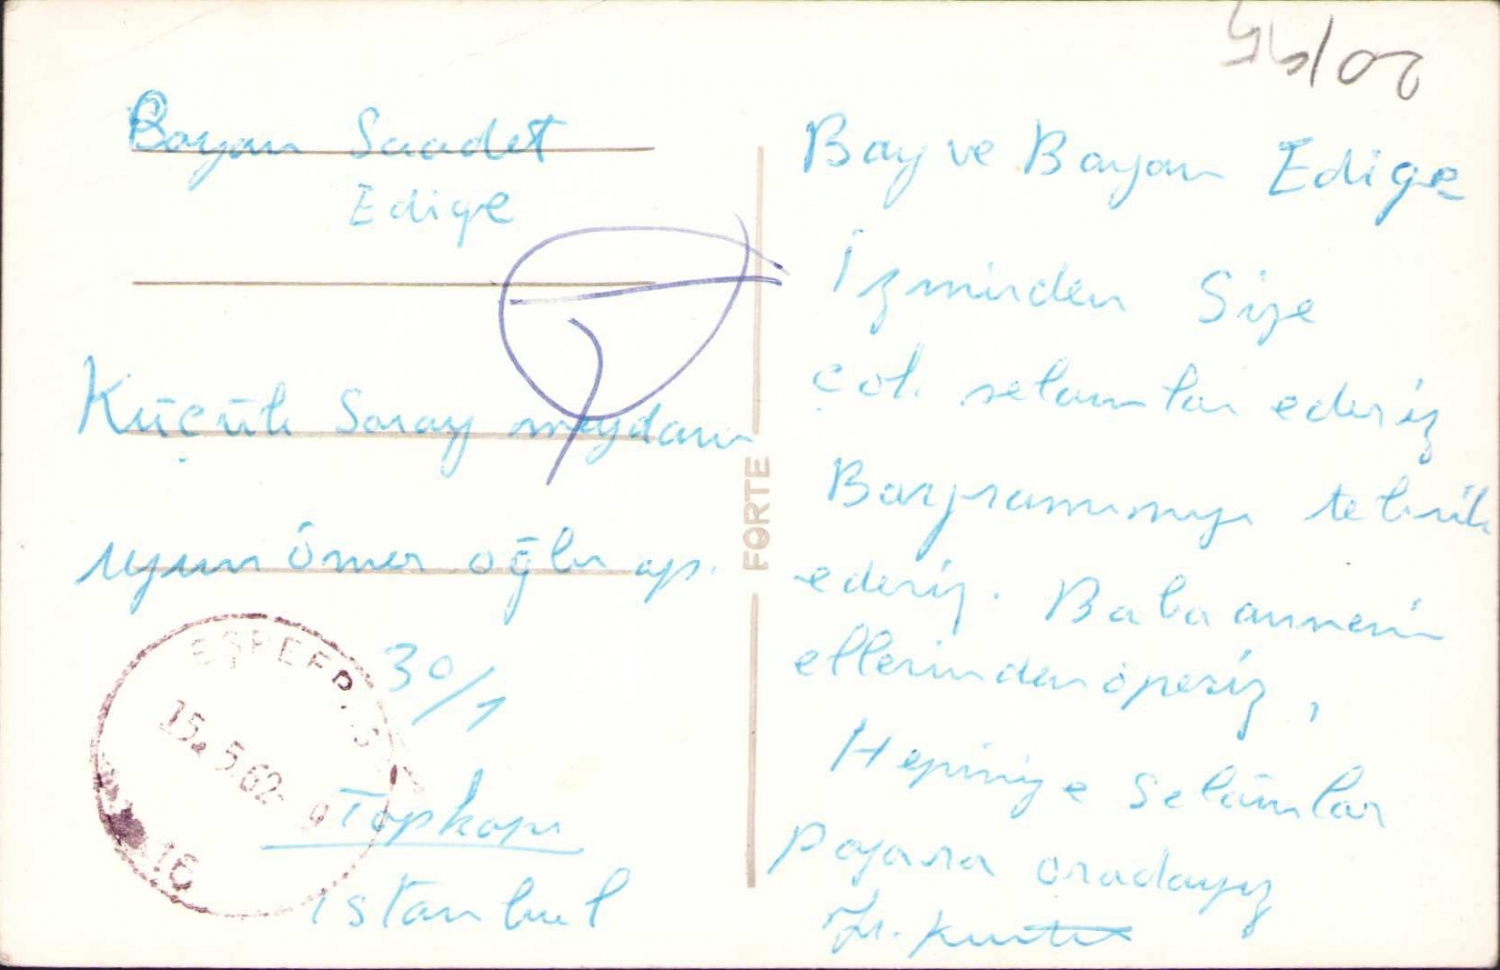 Bayan Saadet
Edige
Küçük Saray meydanı
Ömer oğlu ap.
30/1
Topkapı
istanbul
15.5.62
16
FORTE
Bay ve Bayan Edige
İzmirden Size
çok selamlar ederiz
Bayramınızı tebrik
ederiz. Baba annenin
ellerinden öperiz,
Hepinize Selâmlar
Pazara oradayız